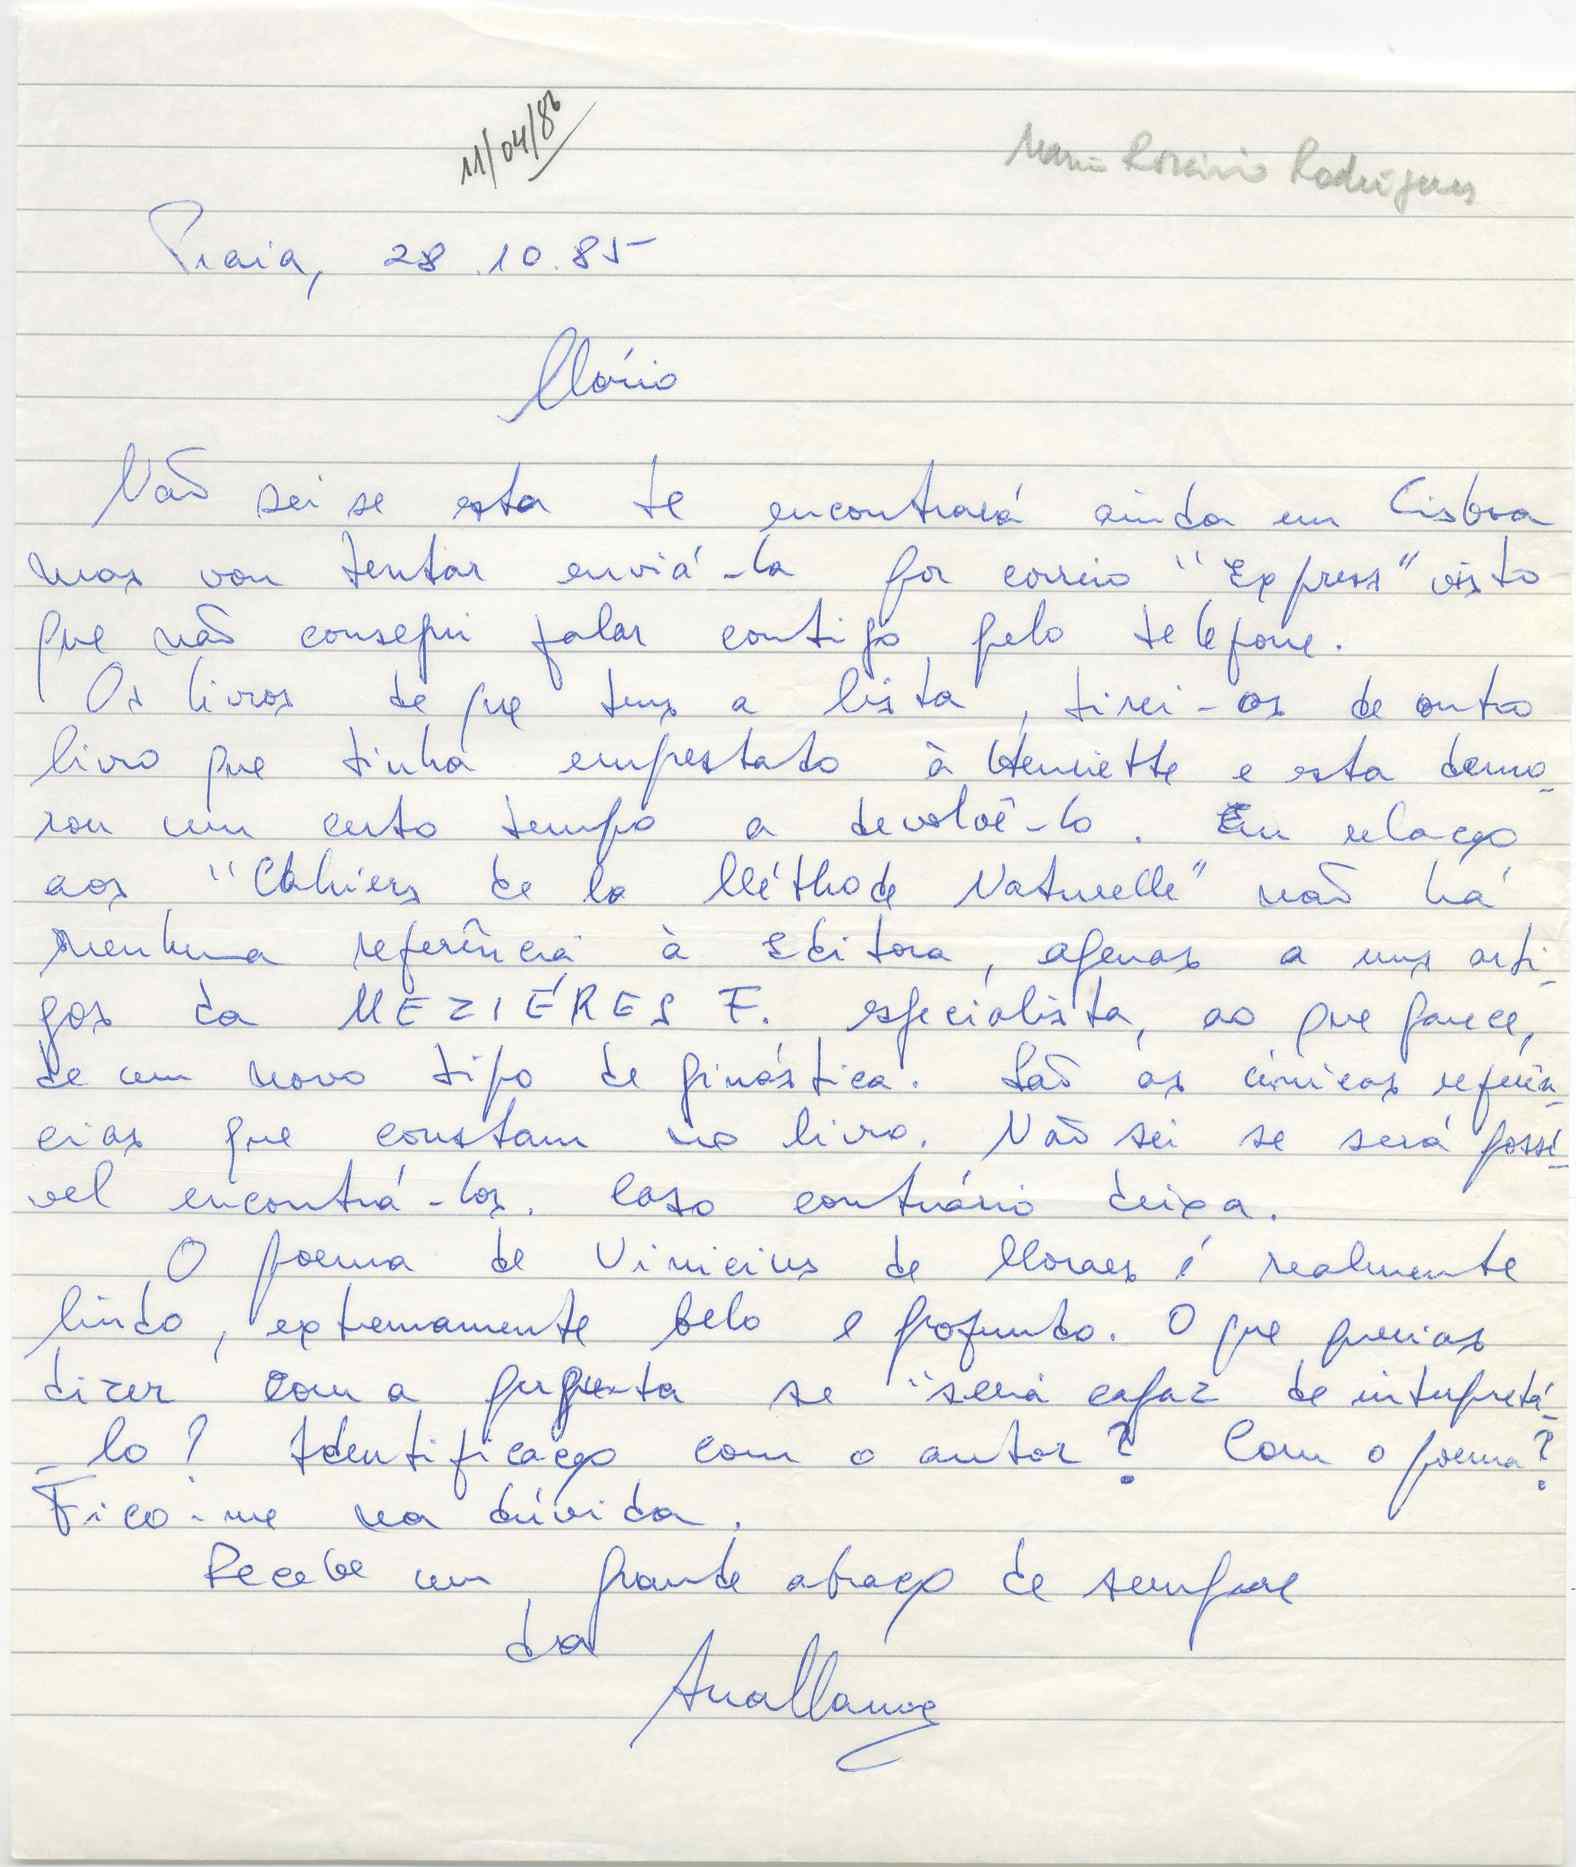 11/04/86
Maria Rosário Rodrigues
Praia, 28.10.85
Mário
Não sei se esta te encontrará ainda em Lisboa
mas vou tentar enviá-la por correio "Express" visto
que não consegui falar contigo pelo telefone.
Os livros de que tens a lista, tirei-os de outro
livro que tinha emprestado à Henriette e esta demo-
rou um certo tempo a devolvê-lo. Em relação
aos "Cahiers de la Méthode Naturelle" não há
nenhuma referência à Editora, apenas a uns arti-
gos da MEZIÉRES F. especialista, ao que parece,
de um novo tipo de ginástica. São as únicas referên-
cias que constam no livro. Não sei se será possí-
vel encontrá-los. Caso contrário deixa.
O poema de Vinicius de Moraes é realmente
lindo, extremamente belo e profundo. O que querias
dizer com a pergunta se "será capaz de interpretá-
-lo? Identificação com o autor? Com o poema?
Fico-me na dúvida.
Recebe um grande abraço de sempre
da